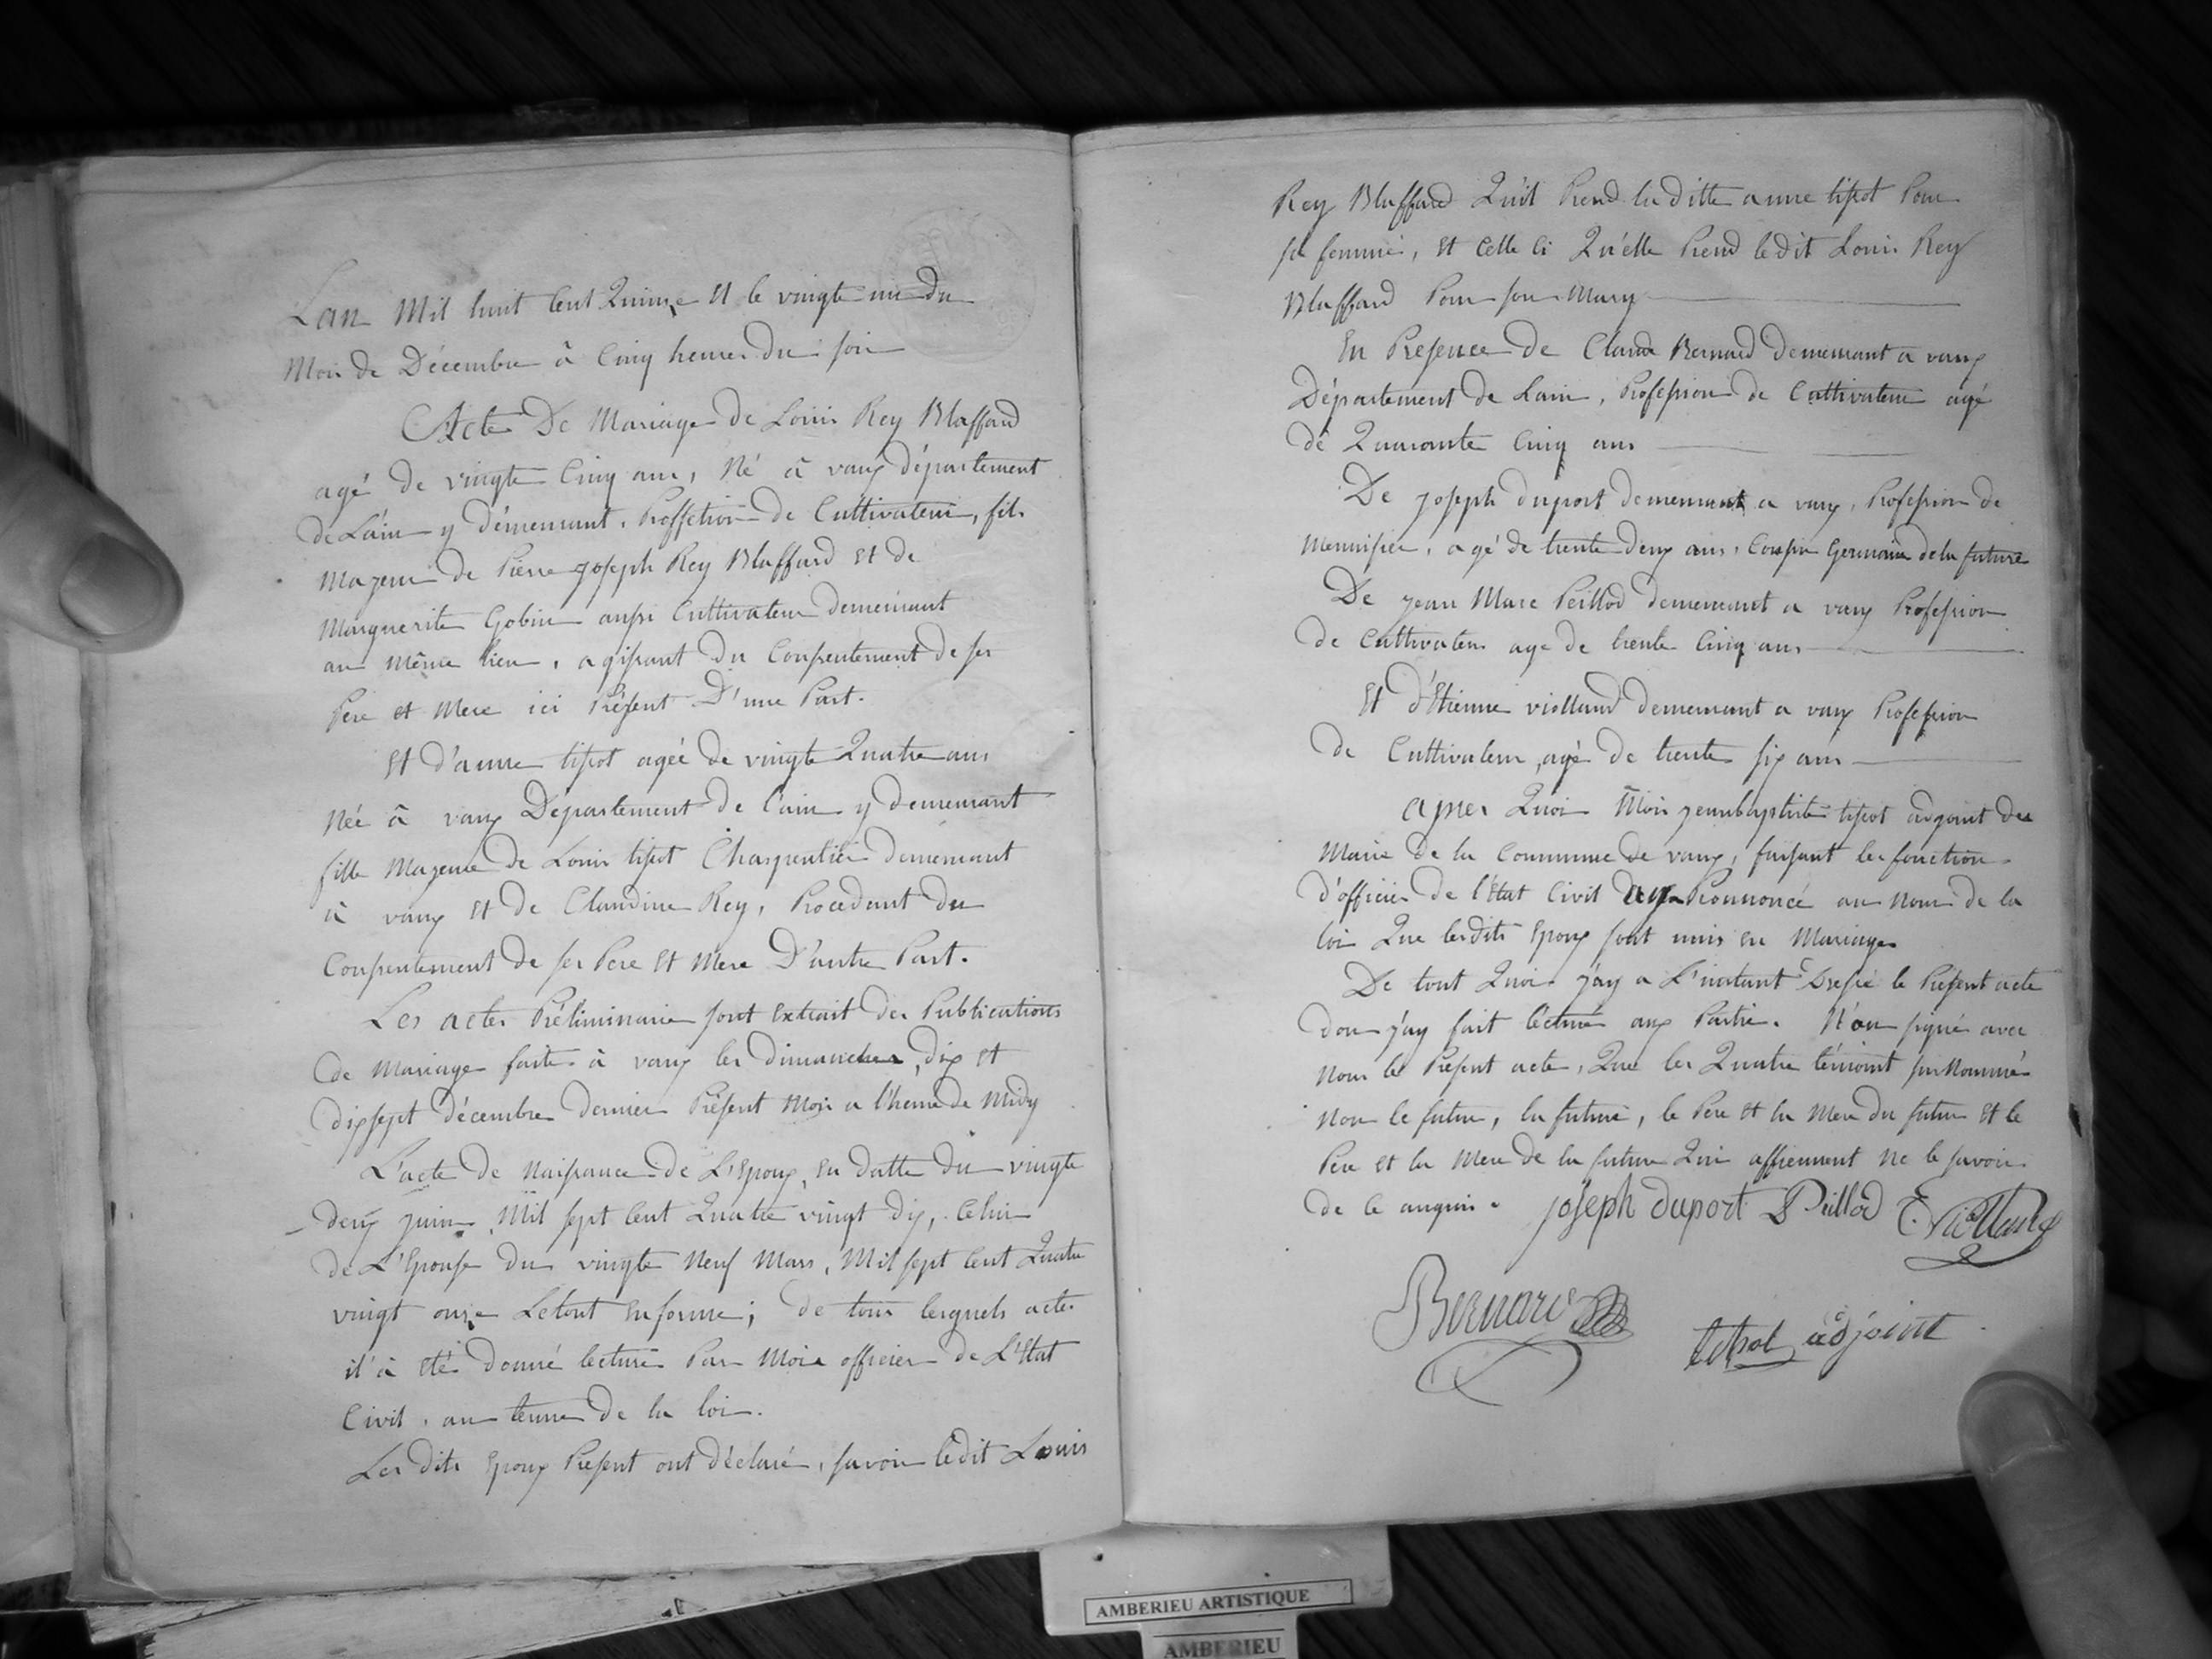 Lan Mil huit Cent Quinze Et le vingte un du
Mois de Décembre à Cinq heures du soir
Acte De Mariage de Louis Rey Blaffard
agé de vingte Cinq ans, Né à vaux département
de Lain y démeurant, Proffetion de Cultivateur, fils
Mazeur de Pierre joseph Rey Blaffard et de
Marguerite Gobin aussi Cultivateur demeurant
au Même lieu, agissant du Consentement de ses
Pere et Mere ici Présent D'une Part.
Et d'anne tissot agée de vingte Quatre ans
Née à vaux Département de l'ain y demeurant
fille Mazeure de Louis tissot Charpentier demeurant
à vaux et de Claudine Rey, Procedant du
Consentement de ses Pere et Mere D'autre Part.
Les actes Préliminaire sont extrait des Publications
de Mariage faite à vaux les dimanches, dix et
dixsept décembre dernier Présent Mois a l'heure de Midy
L'acte de Naissance de L'Epoux, en datte du vingte
deux juin Mil sept Cent Quatre vingt dix, Celui
de L'Epouse du vingte Neuf Mars, Mil sept Cent Quatre
vingt onze Le tout en forme; de tous lesquels actes
il à eté donné lecture Par Moi officier de L'Etat
Civil, au terme de la loi.
Les dits Epoux Présent ont déclaré, savoir ledit Louis
Rey Blaffard Qu'il Prend laditte anne tissot Pour
sa femme, Et Celle Ci Qu'elle Prend ledit Louis Rey
Blaffard Pour son Mary
En Présence de Claude Bernard demeurant a vaux
Département de Lain, Profession de Cultivateur agé
de Quarante Cinq ans
De joseph duport demeurant a vaux, Profession de
Menuisier, agé de trente deux ans, Cousin Germain de la future
De jean Marc Peillod demeurant a vaux Profession
de Cultivateur age de trente Cinq ans
Et d'Etienne violland demeurant a vaux Profession
de Cultivateur, agé de trente six ans
apres Quoi Moi jeanbaptiste tissot adjoint du
Maire de la Commune de vaux, faisant les fonction
d'officier de l'Etat Civil ay Prononcé au Nom de la
loi Que lesdits Epoux sont unis en Mariage
De tout Quoi j'ay a L'instant Dressé le Présent acte
don j'ay fait lécture aux Partie. N'on signé avec
Nous le Présent acte, Que les Quatre témoint susNommé
Non le futur, la future, le Pere et la Mere du futur et le
Pere et la Mere de la future Qui affirment Ne le savoir
de ce anquis. joseph duport Peillod E. Violland
Bernard
tissot adjoint
AMBERIEU ARTISTIQUE
AMBERIEU